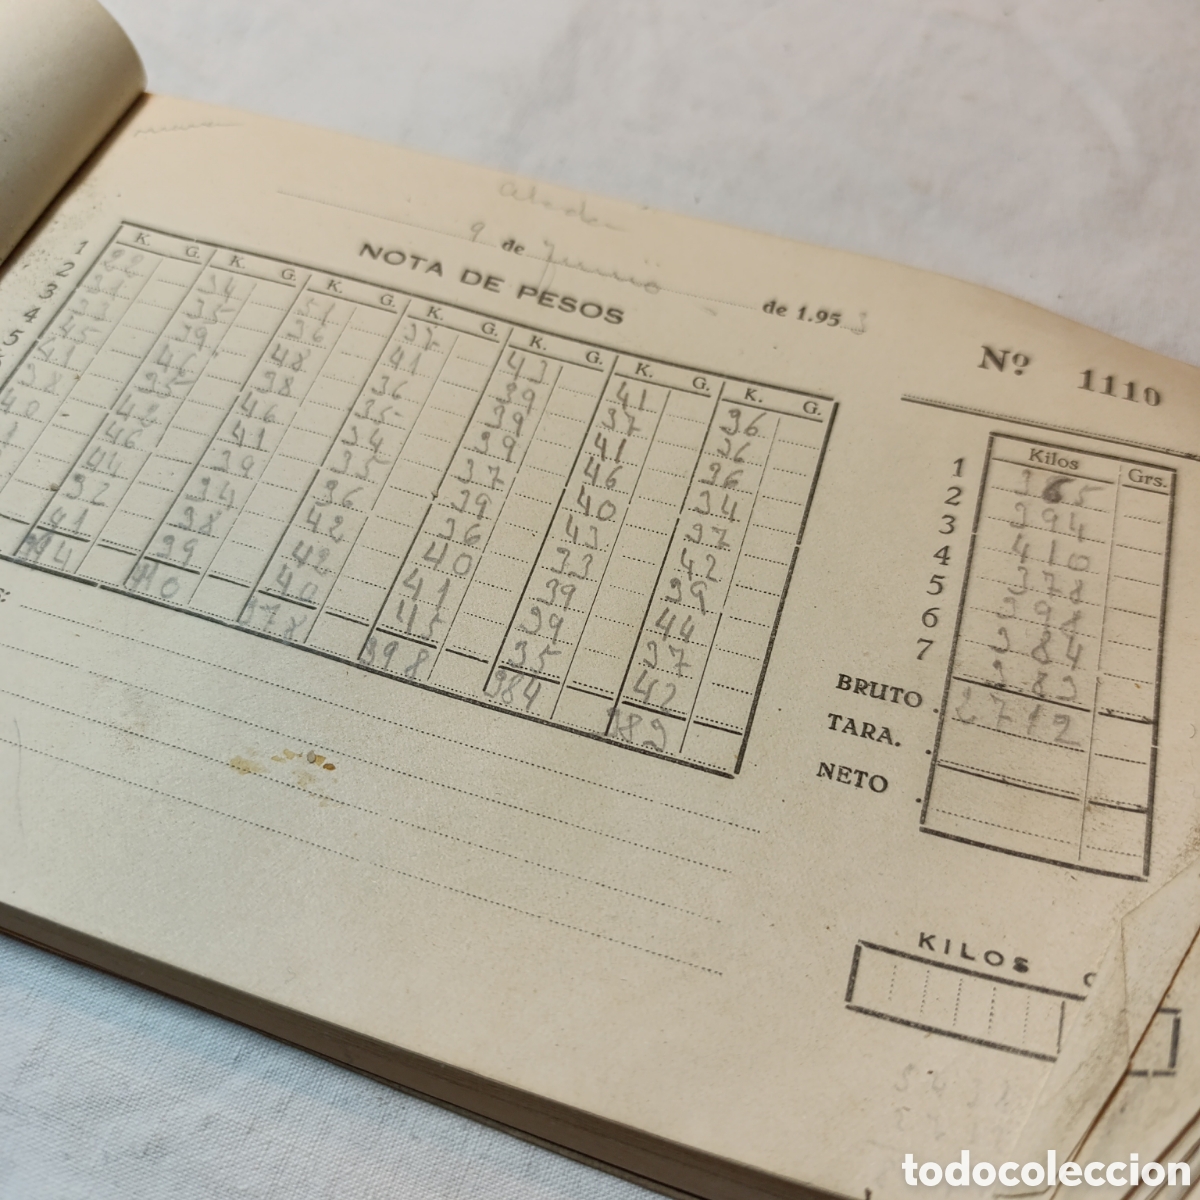 9 de Junio de 1.953
NOTA DE PESOS
Nº 1110
K. G. K. G. K. G. K. G. K. G. K. G. K. G.
1 22 34 51 37 43 41 36
2 31 35 36 41 39 37 36
3 33 39 48 36 39 41 36
4 45 46 38 35 39 46 34
5 41 35 46 34 37 40 37
38 42 41 35 39 43 42
40 46 39 36 36 33 39
44 34 42 40 39 44
32 38 42 41 39 37
41 39 40 45 35 42
394 410 378 398 384 383
Kilos Grs.
1 365
2 394
3 410
4 378
5 398
6 384
7 383
BRUTO. 2712
TARA.
NETO.
KILOS
todocoleccion